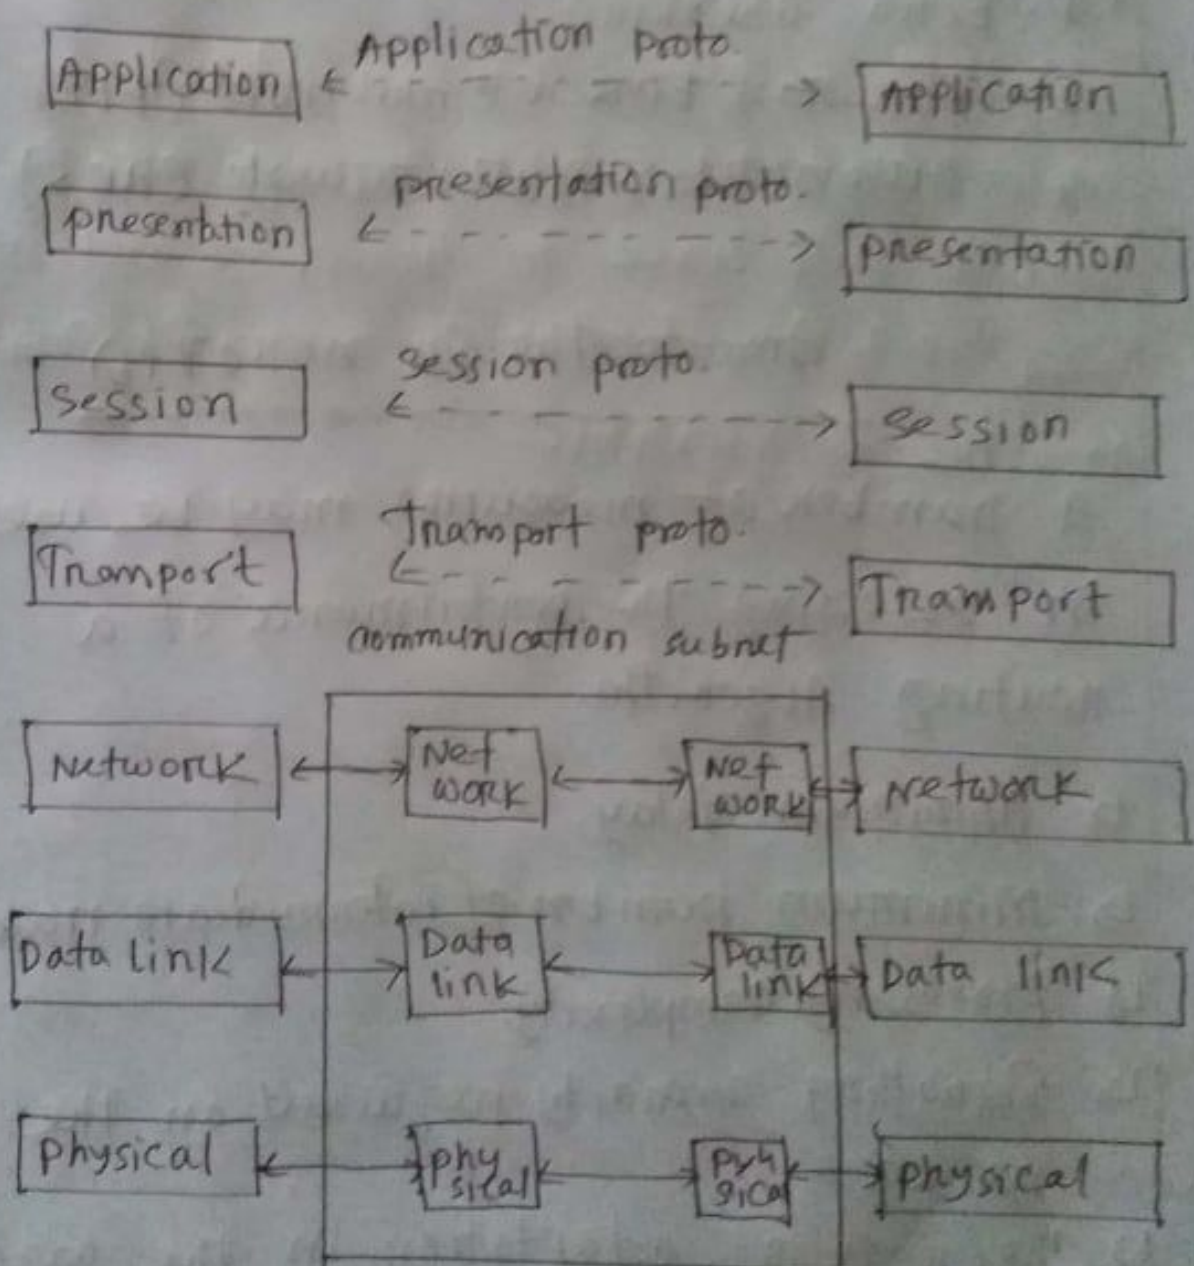 Application
Application proto.
Application
presentation
presentation proto.
presentation
Session
session proto.
session
Transport
Transport proto.
Transport
communication subnet
Network
Net
work
Net
work
Network
Data link
Data
link
Data
link
Data link
physical
phy
sical
pyh
sical
physical